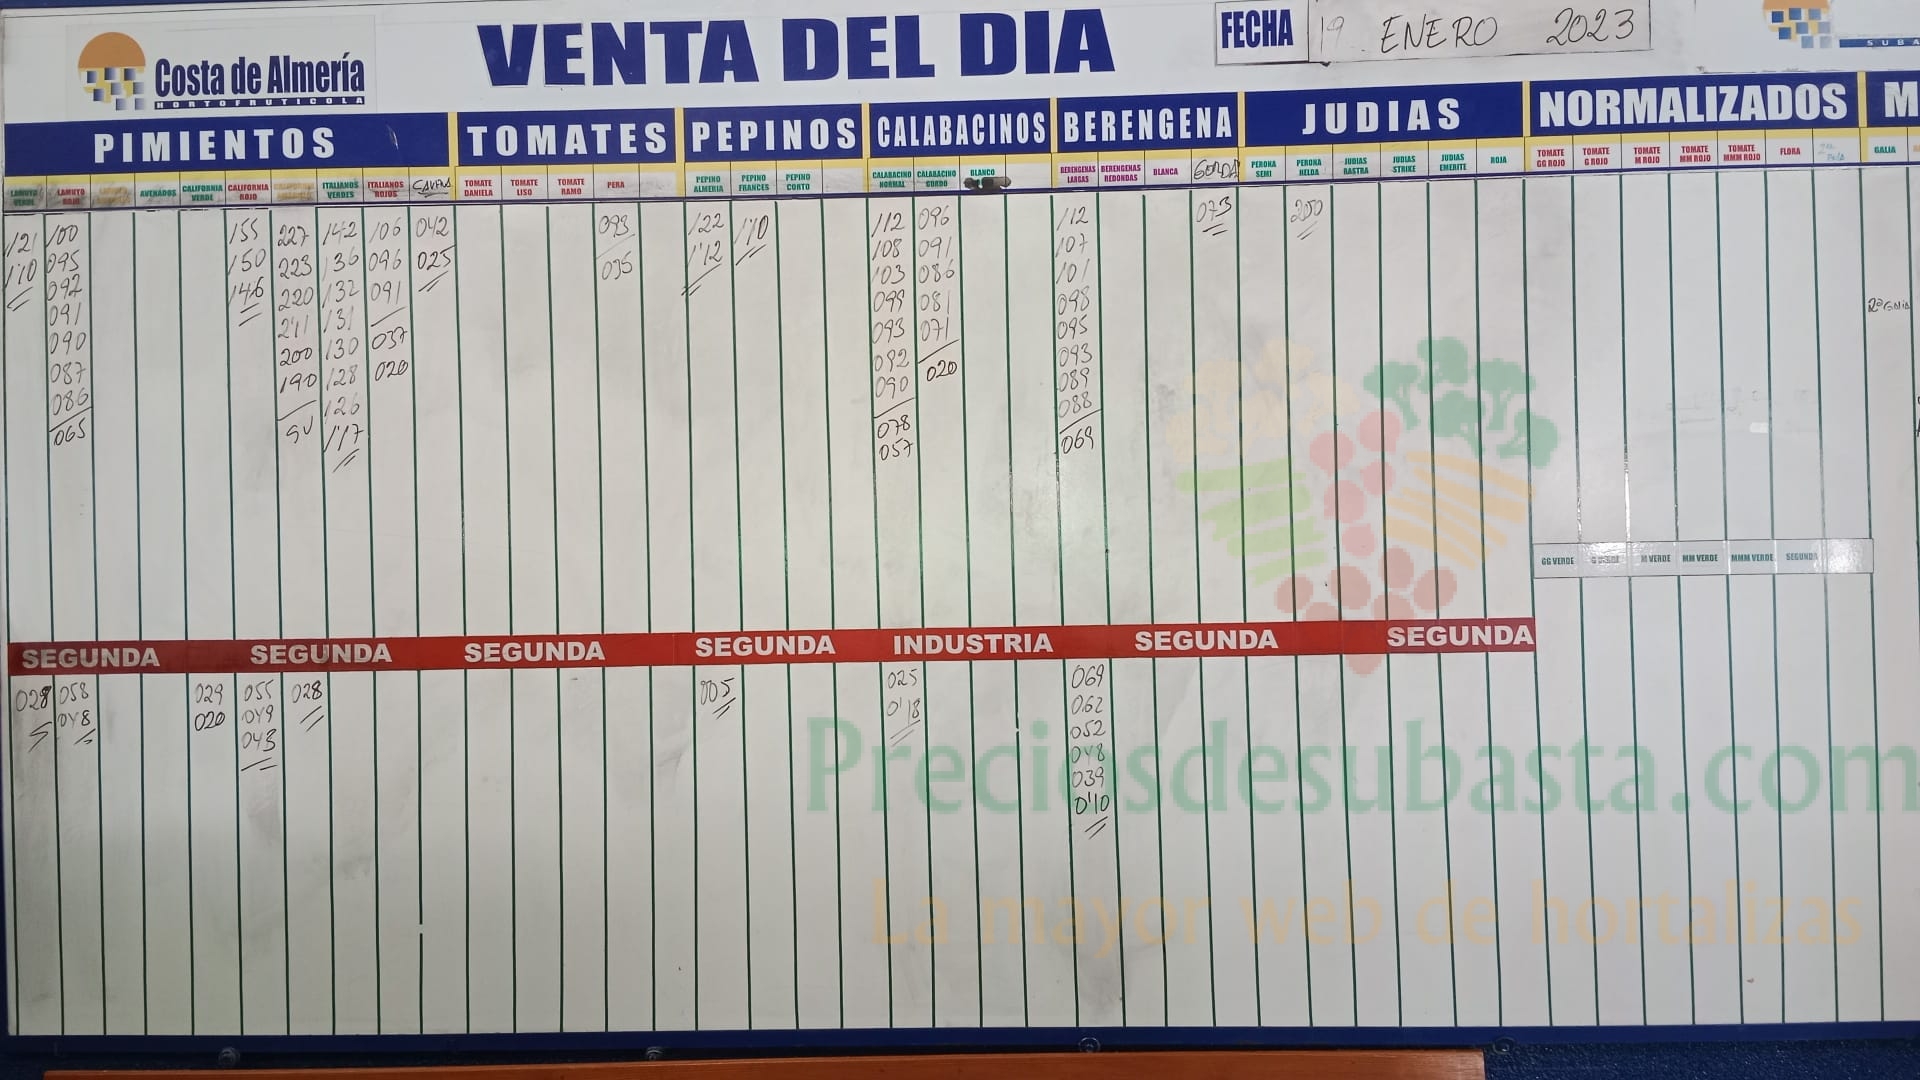 Costa de Almería
HORTOFRUTICOLA
VENTA DEL DIA
FECHA 19 ENERO 2023
SUBA
PIMIENTOS TOMATES PEPINOS CALABACINOS BERENGENA JUDIAS NORMALIZADOS M
LAMUYO VERDE
LAMUYO ROJO
AVENADOS
CALIFORNIA VERDE
CALIFORNIA ROJO
ITALIANOS VERDES
ITALIANOS ROJOS
TOMATE DANIELA
TOMATE LISO
TOMATE RAMO
PERA
PEPINO ALMERIA
PEPINO FRANCES
PEPINO CORTO
CALABACINO NORMAL
CALABACINO GORDO
BLANCO
BERENGENAS LARGAS
BERENGENAS REDONDAS
BLANCA
GORDA
PERONA SEMI
PERONA HELDA
JUDIAS RASTRA
JUDIAS STRIKE
JUDIAS EMERITE
ROJA
TOMATE GG ROJO
TOMATE G ROJO
TOMATE M ROJO
TOMATE MM ROJO
TOMATE MMM ROJO
FLORA
GALIA
121
1'10
100
095
092
091
090
087
086
065
155
150
146
227
223
220
211
200
190
SU
142
136
132
131
130
128
126
1'17
106
096
091
037
020
042
025
093
035
122
1'12
1'10
112
108
103
099
093
092
090
078
057
096
091
086
081
071
020
112
107
101
098
095
093
089
088
069
073
200
2ª Galia
GG VERDE
M VERDE
MM VERDE
MMM VERDE
SEGUNDA
SEGUNDA SEGUNDA SEGUNDA SEGUNDA INDUSTRIA SEGUNDA SEGUNDA
028
058
048
029
020
055
049
043
028
005
025
0'18
069
062
052
048
039
0'10
Preciosdesubasta.com
La mayor web de hortalizas